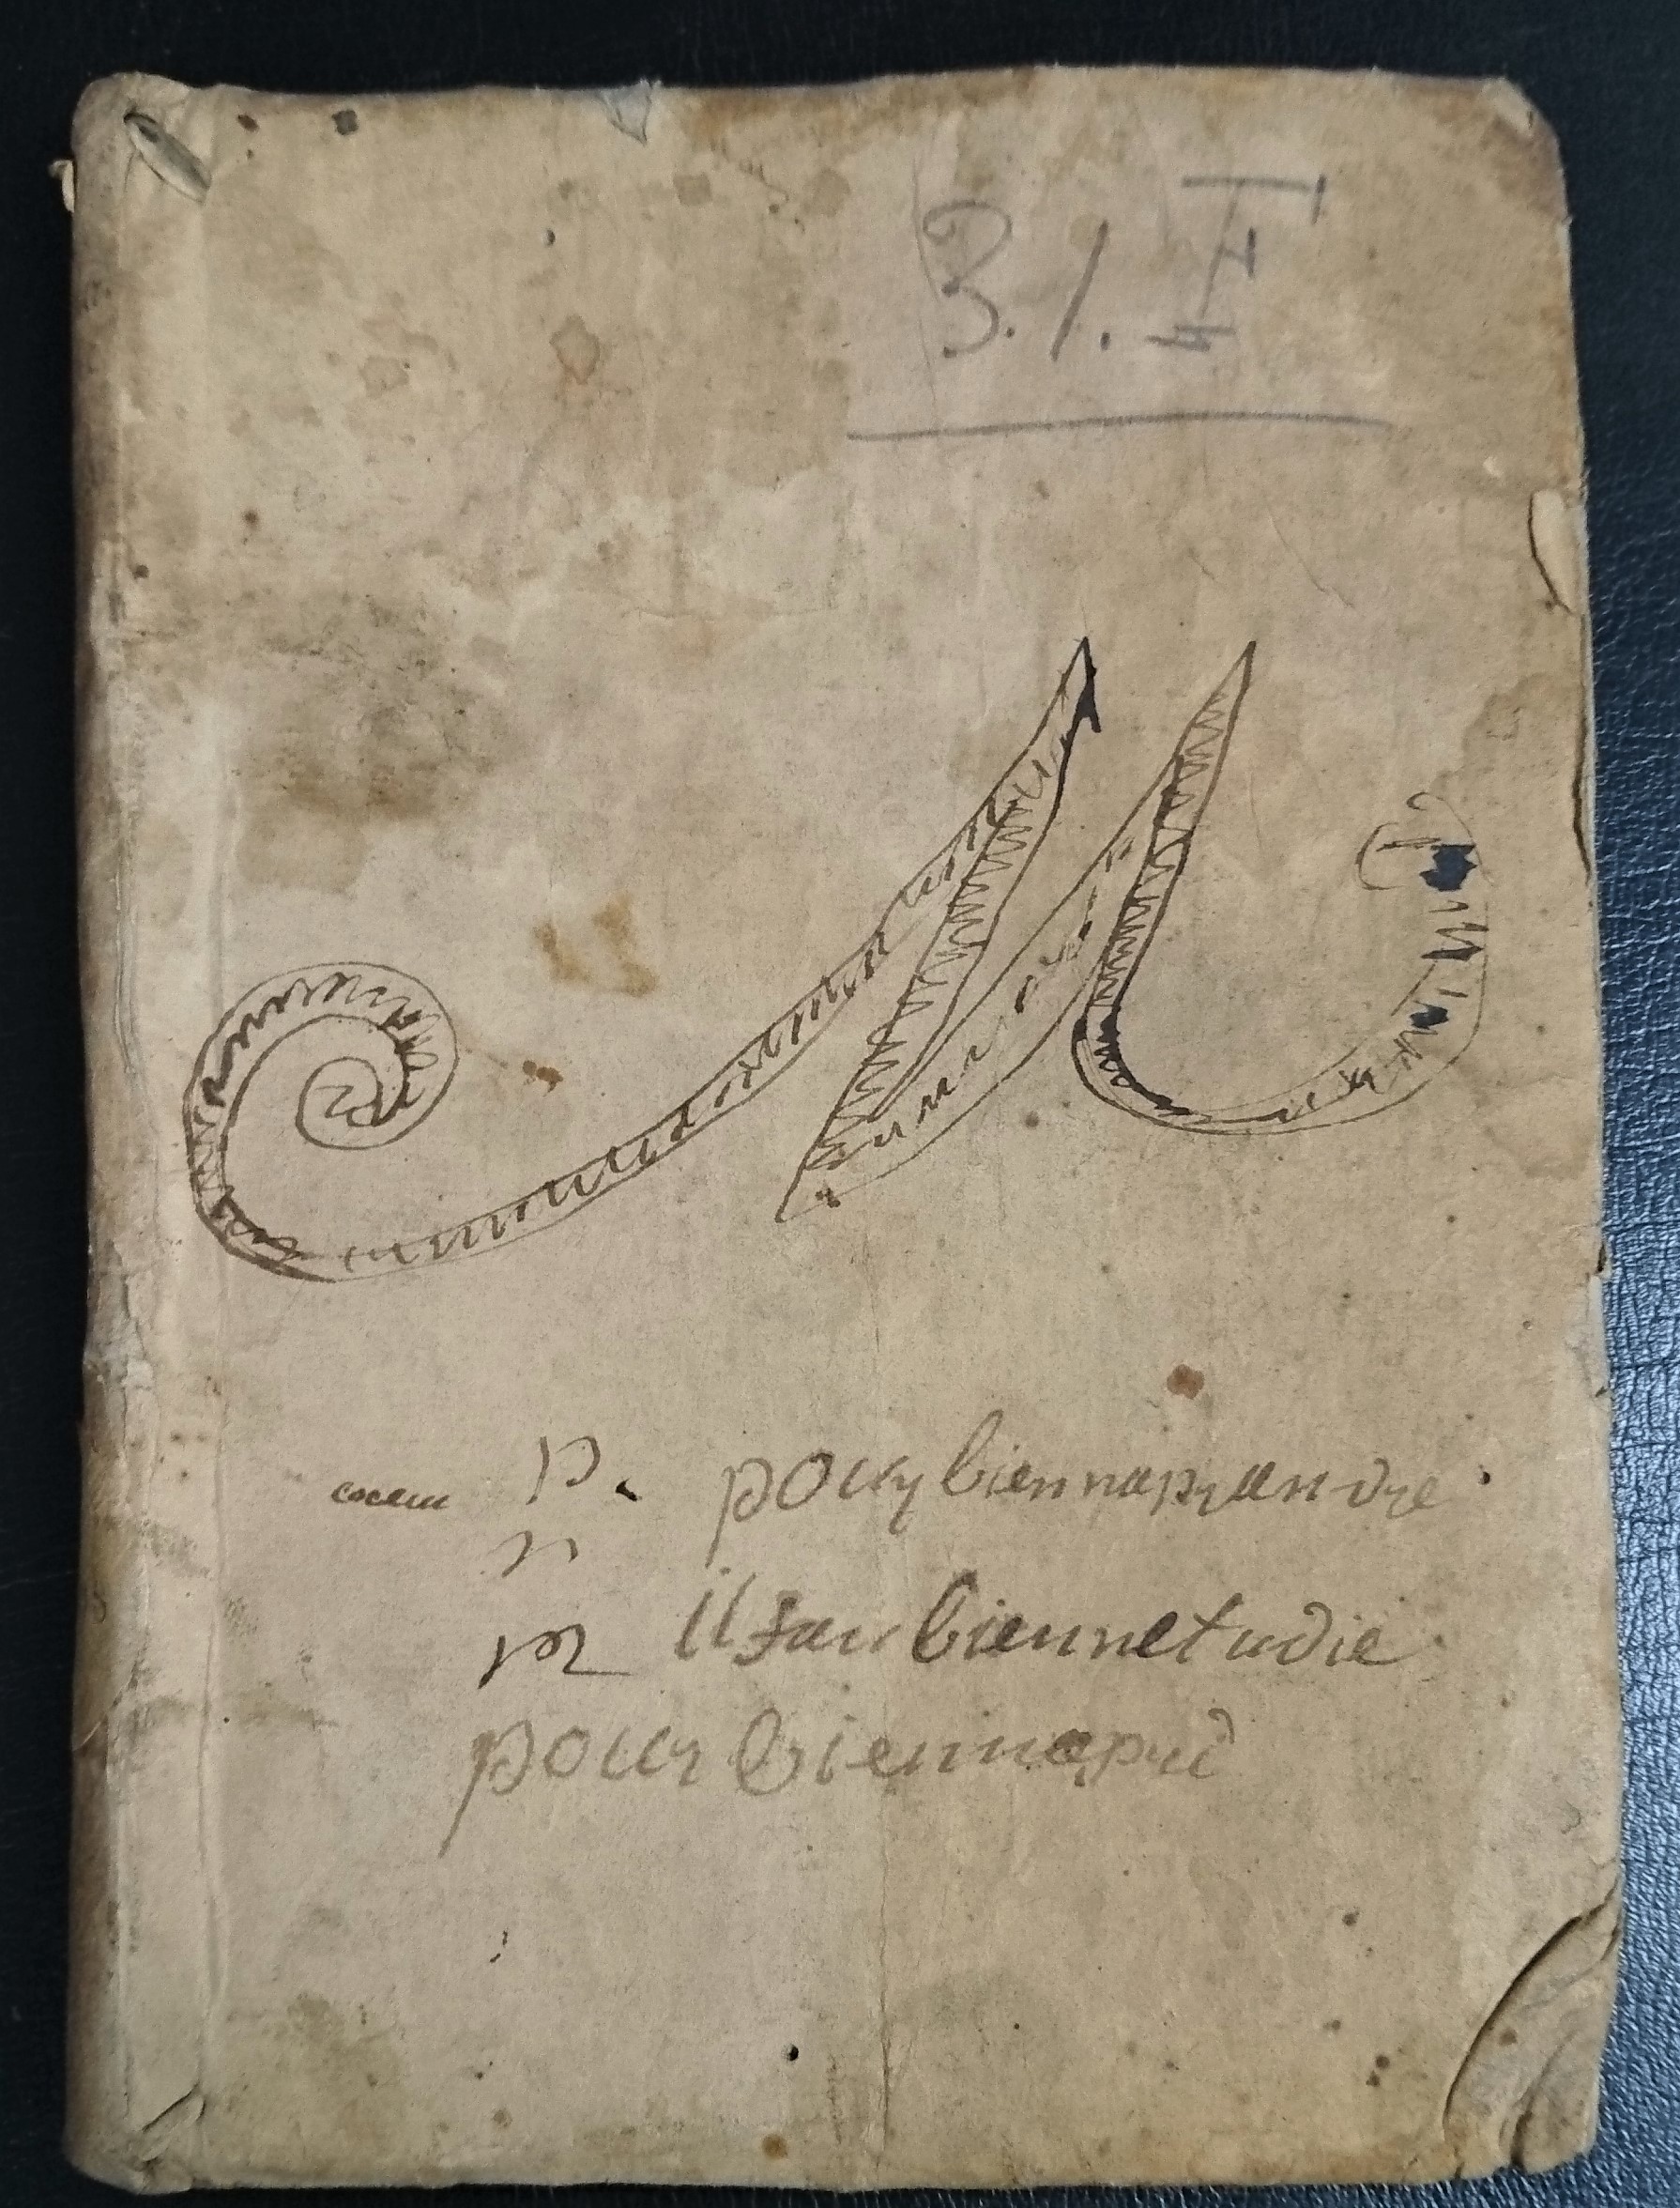 3.1.I
M
P. pour bien naprandre
il fau biennetudie
pour biennapri